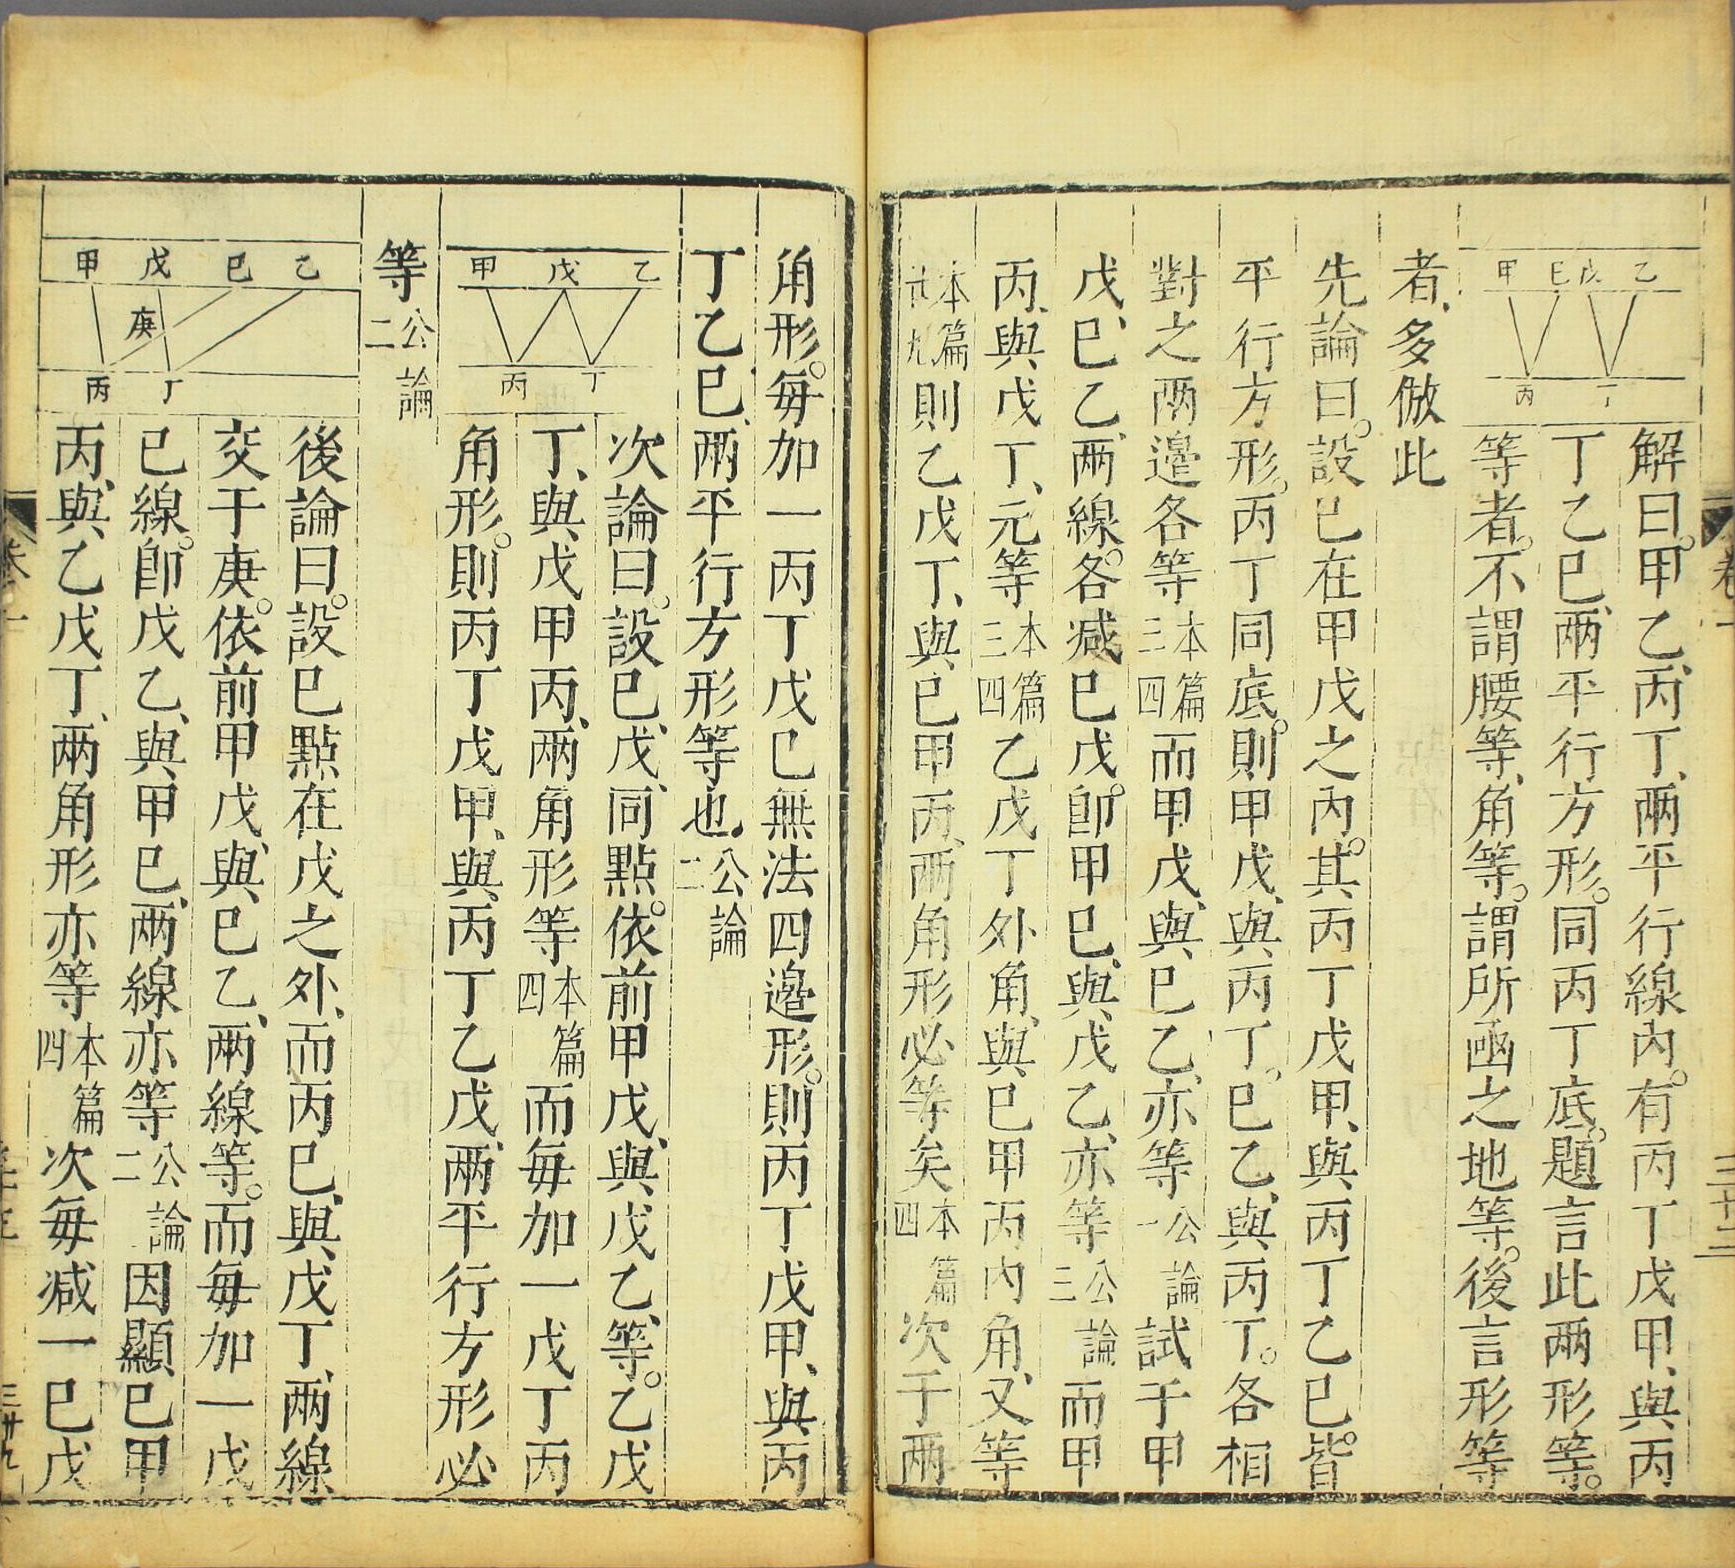 甲 巳 戊 乙
丙 丁
解曰。甲乙、丙丁、兩平行線內。有丙丁戊甲、與丙
丁乙巳、兩平行方形。同丙丁底。題言此兩形等。
等者。不謂腰等、角等。謂所函之地等。後言形等
者、多倣此
先論曰。設巳在甲戊之內。其丙丁戊甲、與丙丁乙巳。皆
平行方形。丙丁同底。則甲戊、與丙丁。巳乙、與丙丁。各相
對之兩邊各等本篇三四而甲戊、與巳乙、亦等公論一試于甲
戊、巳乙、兩線。各減巳戊。卽甲巳、與戊乙、亦等公論三而甲
丙、與戊丁、元等本篇三四乙戊丁外角、與巳甲丙內角、又等
本篇廿九則乙戊丁、與巳甲丙、兩角形必等矣本篇四次于兩
角形。每加一丙丁戊巳無法四邊形。則丙丁戊甲、與丙
丁乙巳、兩平行方形等也公論二
甲 戊 乙
丙 丁
次論曰。設巳、戊、同點。依前甲戊、與戊乙、等。乙戊
丁、與戊甲丙、兩角形等本篇四而每加一戊丁丙
角形。則丙丁戊甲、與丙丁乙戊、兩平行方形必
等公論二
甲 戊 巳 乙
庚
丙 丁
後論曰。設巳點在戊之外、而丙巳、與戊丁、兩線
交于庚。依前甲戊、與巳乙、兩線等。而每加一戊
巳線。卽戊乙、與甲巳、兩線亦等公論二因顯巳甲
丙、與乙戊丁、兩角形亦等本篇四次每減一巳戊